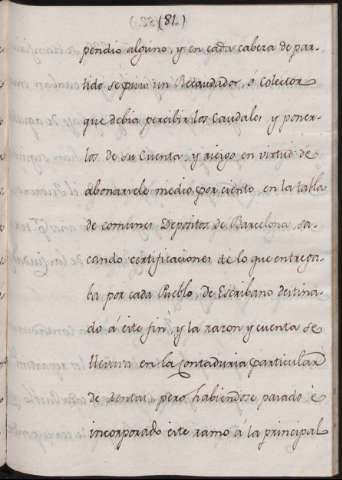 (81.)
pendio alguno, y en cada cabeza de par-
tido se puso un Recaudador, o Colector
que debia percibir los Caudales y poner-
los de su Cuenta y riesgo en virtud de
abonarsele medio por ciento en la tabla
de comunes Depositos de Barcelona, sa-
cando certificaciones de lo que entrega-
ba por cada Pueblo, de Escribano destina-
do á éste fin, y la razon y cuenta se
llevava en la Contaduria particular
de rentas, pero habiendose pasado é
incorporado éste ramo á la principal